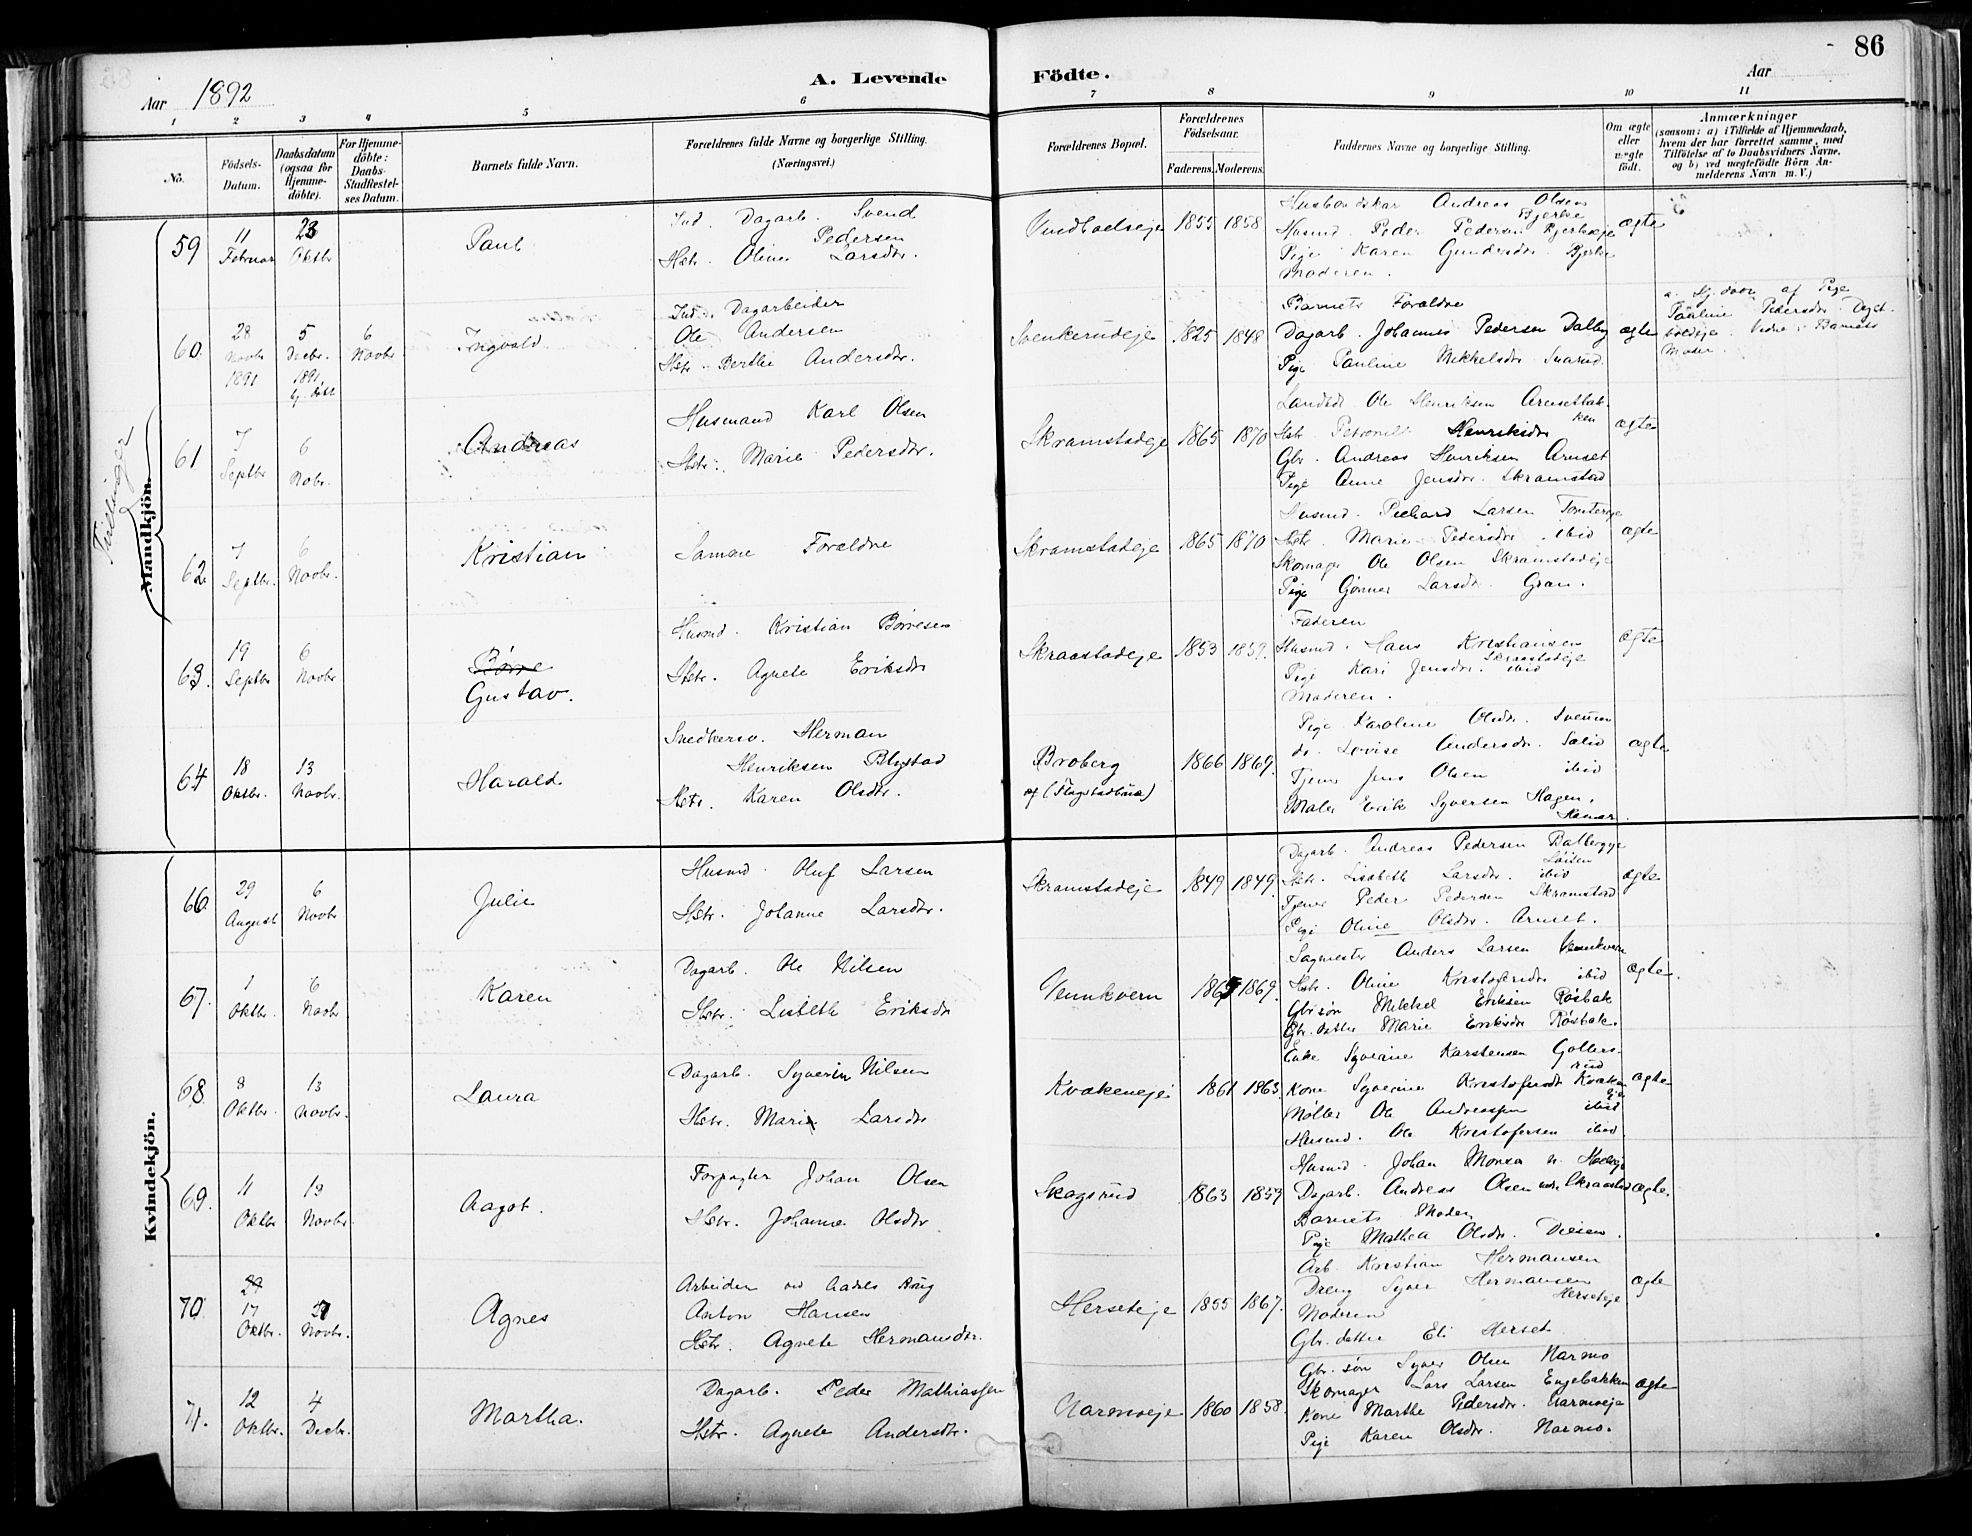 86
Aar 1892
A. Levende Födte.
Aar
1 2 3 4 5 6 7 8 9 10 11
No.
Födsels-Datum.
Daabsdatum (ogsaa for Hjemme-döbte).
For Hjemme-döbte: Daabs-Stadfæstel-ses Datum.
Barnets fulde Navn.
Forældrenes fulde Navne og borgerlige Stilling. (Næringsvei.)
Forældrenes Bopæl.
Forældrenes Födselsaar.
Faderens. Moderens.
Faddernes Navne og borgerlige Stilling.
Om ægte eller uægte födt.
Anmærkninger
(saasom: a) i Tilfælde af Hjemmedaab,
hvem der har forrettet samme, med
Tilföielse af to Daabsvidners Navne,
og b) ved uægtefödte Börn An-
melderens Navn m. V.)
Mandkjön.
Tvillinger
59
11 Februar
23 Oktbr
Paul
Ind. Dagarb. Svend
Pedersen
Hstr. Oline Larsdtr.
1855 1858
Husbondskar Andreas Olsen
Bjerke
Husmd. Peder Pedersen Bjerkeeje
Pige Karen Gundersdtr. Bjerke
Moderen.
ægte
60.
28 Novbr 1891
5 Decbr. 1891
6 Novbr
Ingvald
Ind. Dagarbeider
Ole Andersen
Hstr. Berthe Andersdtr.
Svenkerudeje
1825 1848
Barnets Forældre
Dagarb. Johannes Pedersen Dalby
Pige Pauline Mikkelsdtr
ægte
a. Hj. døbt af Pige
Pauline Pedersdtr
Vidne: Barnets
Moder.
61
7 Septbr
6 Nobr.
Andreas
Husmand Karl Olsen
Hstr. Marie Pedersdtr.
Skramstadeje
1865 1870
Landhdl. Ole Henriksen Arnsetbak-
ken
Hstr. Petronel Henriksdtr
Gbr. Andreas Henriksen Arnset
Pige Anne Jensdtr. Skramstad
ægte
62.
7 Septbr.
6 Novbr.
Kristian
Samme Forældre
Skramstadeje
1865 1870
Husmd. Richard Larsen Tomtereje
Hstr. Marie Pedersdtr. ibid
Skomager Ole Olsen Skramstadeje
Pige Gønner Larsdtr. Gran.
ægte
63.
19 Septbr
6 Novbr
Børre
Gustav.
Husmd. Kristian Børresen
Hstr. Agnete Eriksdtr
Skraastadeje
1853 1859.
Faderen
Husmd. Hans Kristiansen
Skraastadeje
Pige Kari Jensdtr. ibid
Moderen.
ægte
64
18 Oktbr.
13 Novbr.
Harald
Snedkersv. Herman
Henriksen Blystad
Hstr. Karen Olsdtr.
Broberg
af (Flagstadbrua)
1866 1869.
Pige Karoline Olsdtr.
do. Lovise Andersdtr. Sælid
Tjener Jens Olsen ibid
Maler Erik Syversen Hagen,
Hamar.
ægte
Kvindekjön.
66
29 August
6 Novbr
Julie
Husmd. Oluf Larsen
Hstr. Johanne Larsdtr.
Skramstadeje
1849 1849.
Dagarb. Andreas Pedersen Balbergeje
Løiten
Hstr. Lisabeth Larsdtr. ibid
Tjener Peder Pedersen Skramstad
Pige Oline Olsdtr. Arnset.
ægte
67.
1 Oktbr.
6 Novbr
Karen
Dagarb. Ole Nilsen
Hstr. Lisbeth Eriksdtr
Vennkvern
1865 1869.
Sagmester Anders Larsen Vennkvern
Hstr. Oline Kristofersdtr ibid
Gbr søn Mikkel Eriksen Røsbak
Gbr. datter Marie Eriksdtr Røsbak.
ægte.
68
8 Oktbr.
13 Novbr.
Laura
Dagarb. Syverin Nilsen
Hstr. Marie Larsdtr
Kvakeneje
1861 1863.
Enke Syverine Karstensen Gollers-
rud
Kone Syverine Kristofersdtr Kvaken
eje
Møller Ole Andreassen ibid
Husmd. Ole Kristofersen ibid.
ægte
69.
11 Oktbr
13 Novbr.
Aagot.
Forpagter Johan Olsen
Hstr. Johanne Olsdtr.
Skogsrud
1863 1859
Husmd. Johan Monsen
Dagarb. Andreas Olsen Skraastad
Barnets Moder
Pige Mathea Olsdtr. Diesen.
ægte.
70.
17 Oktbr.
27 Novbr.
Agnes
Arbeider ved Aadals Brug
Anton Hansen
Hstr. Agnete Hermansdtr.
Herseteje
1855 1867.
Arb. Kristian Hermansen
Dreng Syver Hermansen
Herseteje
Moderen
Gbr. datter Eli Herset
ægte
71.
12 Oktbr.
4 Decbr.
Martha.
Dagarb. Peder Mathiassen
Hstr. Agnete Andersdtr.
Narmoeje
1860 1858.
Gbr. søn Syver Olsen Narmo
Skomager Lars Larsen Engebakken
Kone Marthe Pedersdtr. Narmoeje
Pige Karen Olsdtr. Narmo.
ægte